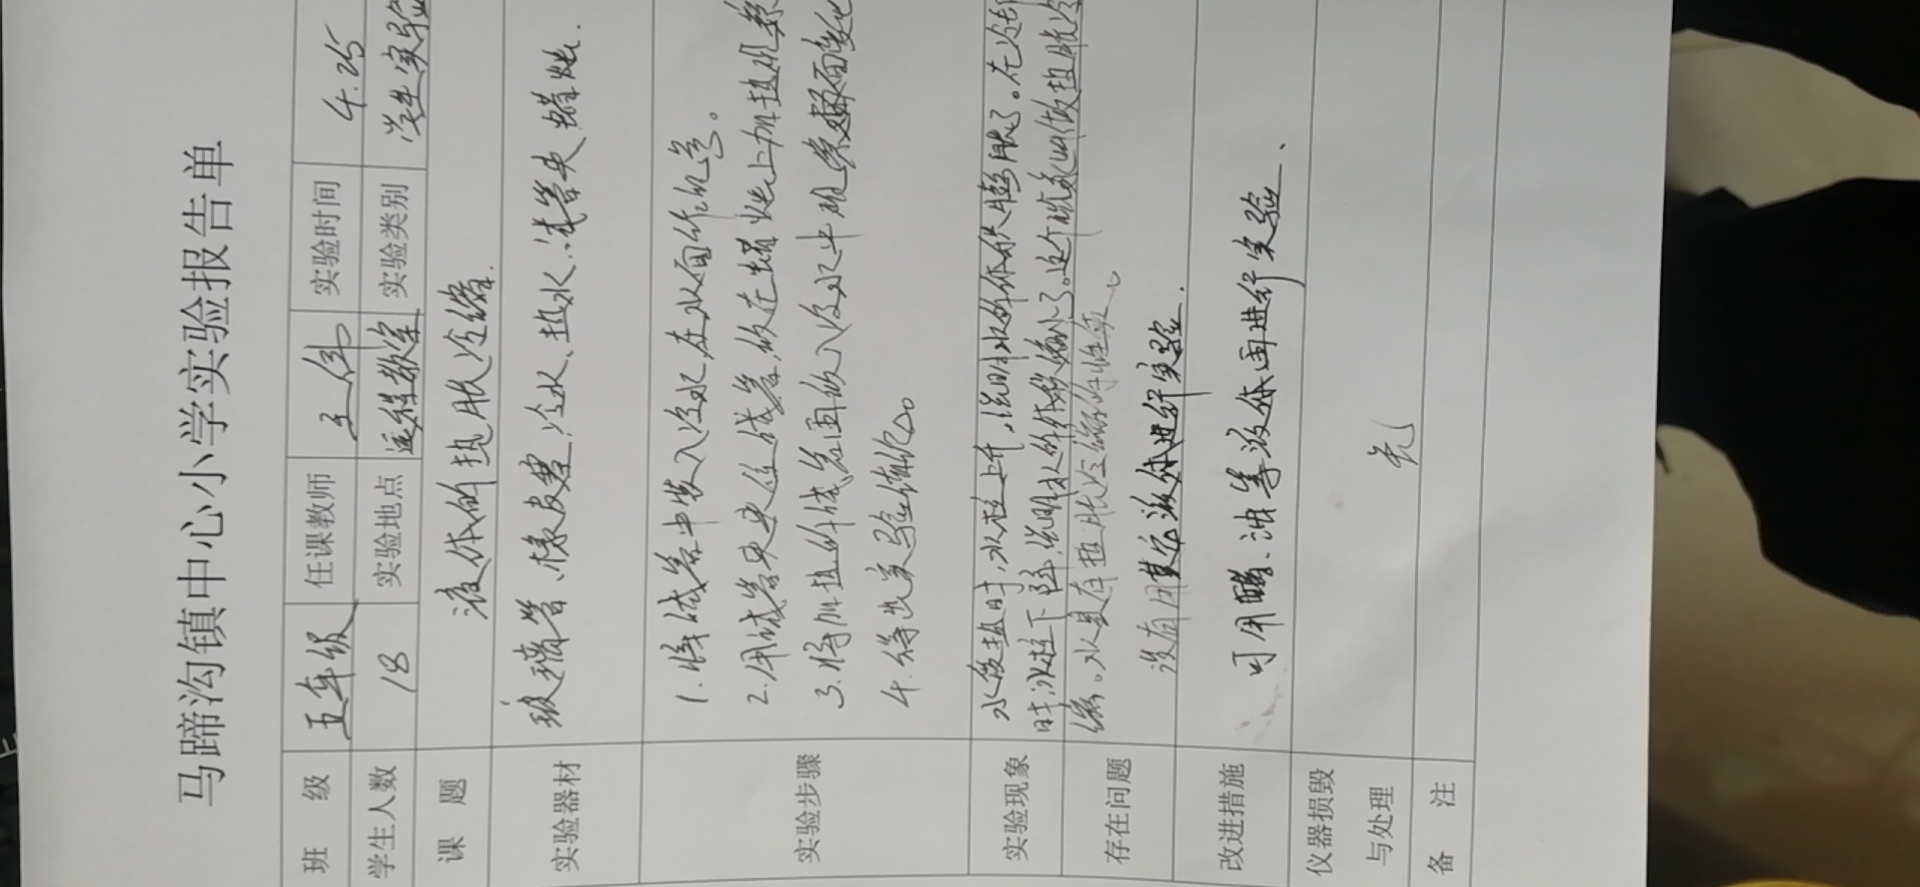 马蹄沟镇中心小学实验报告单
班 级 五年级 任课教师 王伟 实验时间 4.25
学生人数 18 实验地点 远程教室 实验类别 学生实验
课 题 液体的热胀冷缩.
实验器材 玻璃管、橡皮塞、冷水、热水、试管夹 蜡烛.
实验步骤
1.将试管中装入冷水,在水面作记号。
2.用试管夹夹住试管,放在蜡烛上加热观察
3.将加热的试管再放入冷水中观察 面变化
4.得出实验结论。
实验现象 水受热时,水柱上升,说明水的体积膨胀了。在冷却
时,水柱下降,说明水的体积缩小了。这个 热胀冷
缩。水具有热胀冷缩的性质。
存在问题 没有用其它液体进行实验.
改进措施 可用醋、油等液体再进行实验、
仪器损毁
与处理 无
备 注